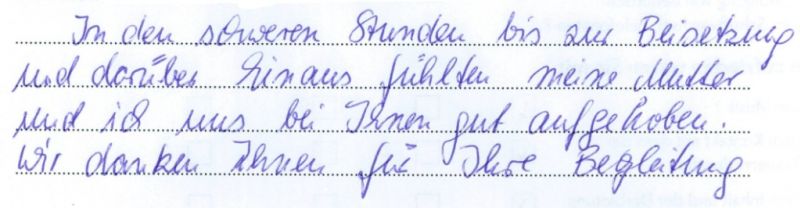 In den schweren Stunden bis zur Beisetzung
und darüber hinaus fühlten meine Mutter
und ich uns bei Ihnen gut aufgehoben.
Wir danken Ihnen für Ihre Begleitung